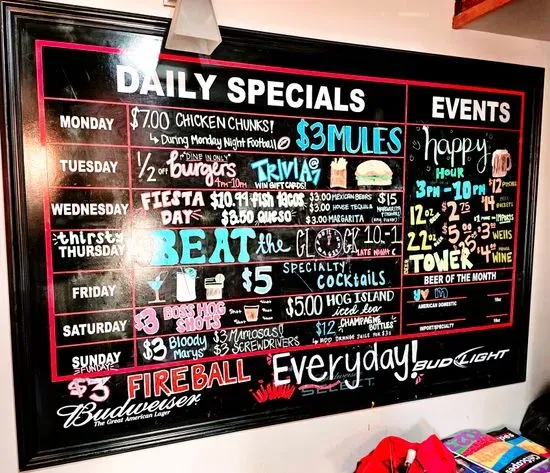 DAILY SPECIALS
MONDAY
$7.00 CHICKEN CHUNKS!
↳ During Monday Night Football
$3 MULES
TUESDAY
1/2 off "DINE IN ONLY" burgers
4PM-10PM
TRIVIA @7
WIN GIFT CARDS!
WEDNESDAY
FIESTA DAY
$10.99 fish tacos
$3.50 queso
$3.00 MEXICAN BEERS
$3.00 HOUSE TEQUILA
$3.00 MARGARITA
$15
thirsty THURSDAY
BEAT the CLOCK 10-1
LATE NIGHT
FRIDAY
$5 SPECIALTY COCKTAILS
SATURDAY
$3 BOSS HOG SHOTS
$5.00 HOG ISLAND iced tea
SUNDAY
FUNDAY
$3 Bloody Marys
$3 MIMOSAS!
$3 SCREWDRIVERS
$12 CHAMPAGNE BOTTLES
↳ ADD ORANGE JUICE FOR $3
EVENTS
happy
HOUR
3PM-10PM
12oz $2.75
22oz $5.00
TOWER
$12 PITCHERS
IMPORTS
$3 WELLS
$4 WINE
BEER OF THE MONTH
AMERICAN DOMESTIC
16oz
IMPORT/SPECIALTY
16oz
$3 FIREBALL Everyday!
Budweiser
The Great American Lager
SELECT
BUD LIGHT